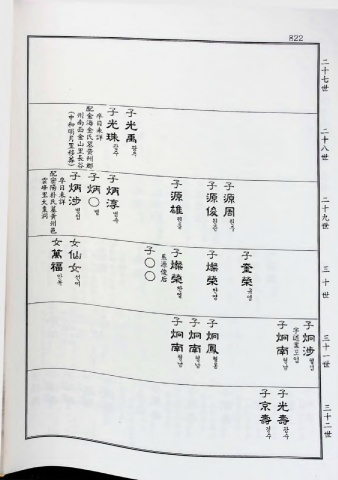 822
二十七世
二十八世
子光禹 광우
子光珠 광수
卒日未詳
配金海金氏墓黃州郡
州南面金山里長谷
二十九世
子源周 원주
子源俊 원준
子源雄 원웅
子炳淳 병순
子炳〇 병
子炳涉 병섭
卒日未詳
配密陽朴氏墓黃州邑
三十世
子奎榮 규영
子燦榮 찬영
子燦榮 찬영
系源俊后
子〇〇
女仙女 선여
女萬福 만복
三十一世
子炯涉 형섭
子炯南 형남
子炯鳳 형봉
子炯南 형남
子炯南 형남
三十二世
子光壽 광수
子京壽 경수